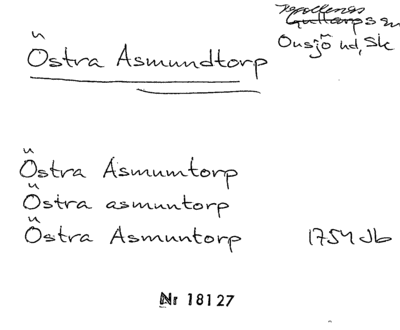 Gullarps sn
Onsjö hd, Sk
Östra Asmundtorp
Östra Asmumtorp
Östra asmuntorp
Östra Asmuntorp 1754 Jb
Nr 18127